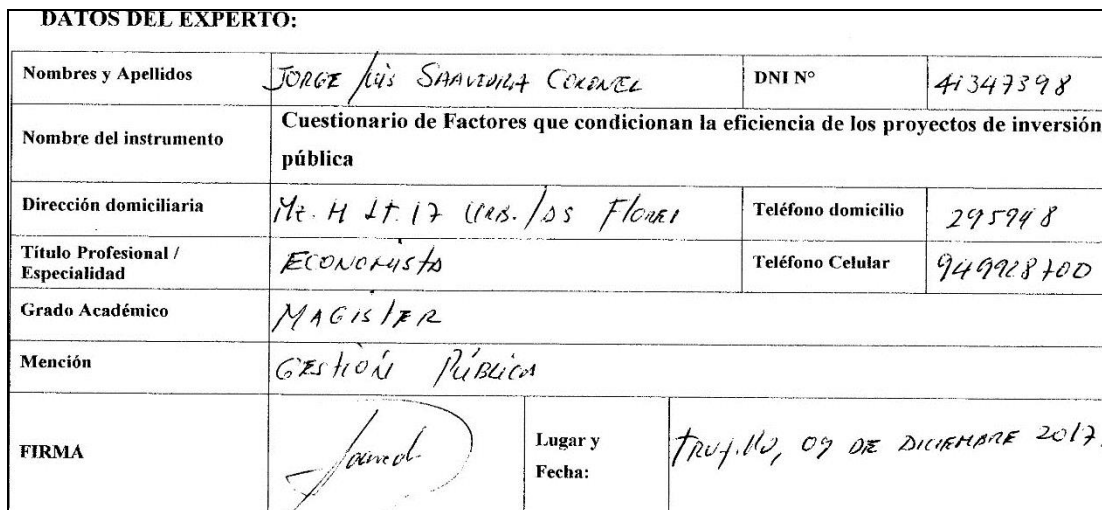 DATOS DEL EXPERTO:
Nombres y Apellidos JORGE LUIS SAAVEDRA CORONEL DNI N° 41347398
Nombre del instrumento Cuestionario de Factores que condicionan la eficiencia de los proyectos de inversión
pública
Dirección domiciliaria Mz. H LT. 17 URB. LOS Flores Teléfono domicilio 295948
Título Profesional / Especialidad ECONOMISTA Teléfono Celular 949928700
Grado Académico MAGISTER
Mención GESTIÓN PÚBLICA
FIRMA Lugar y
Fecha: TRUJILLO, 09 DE DICIEMBRE 2017.